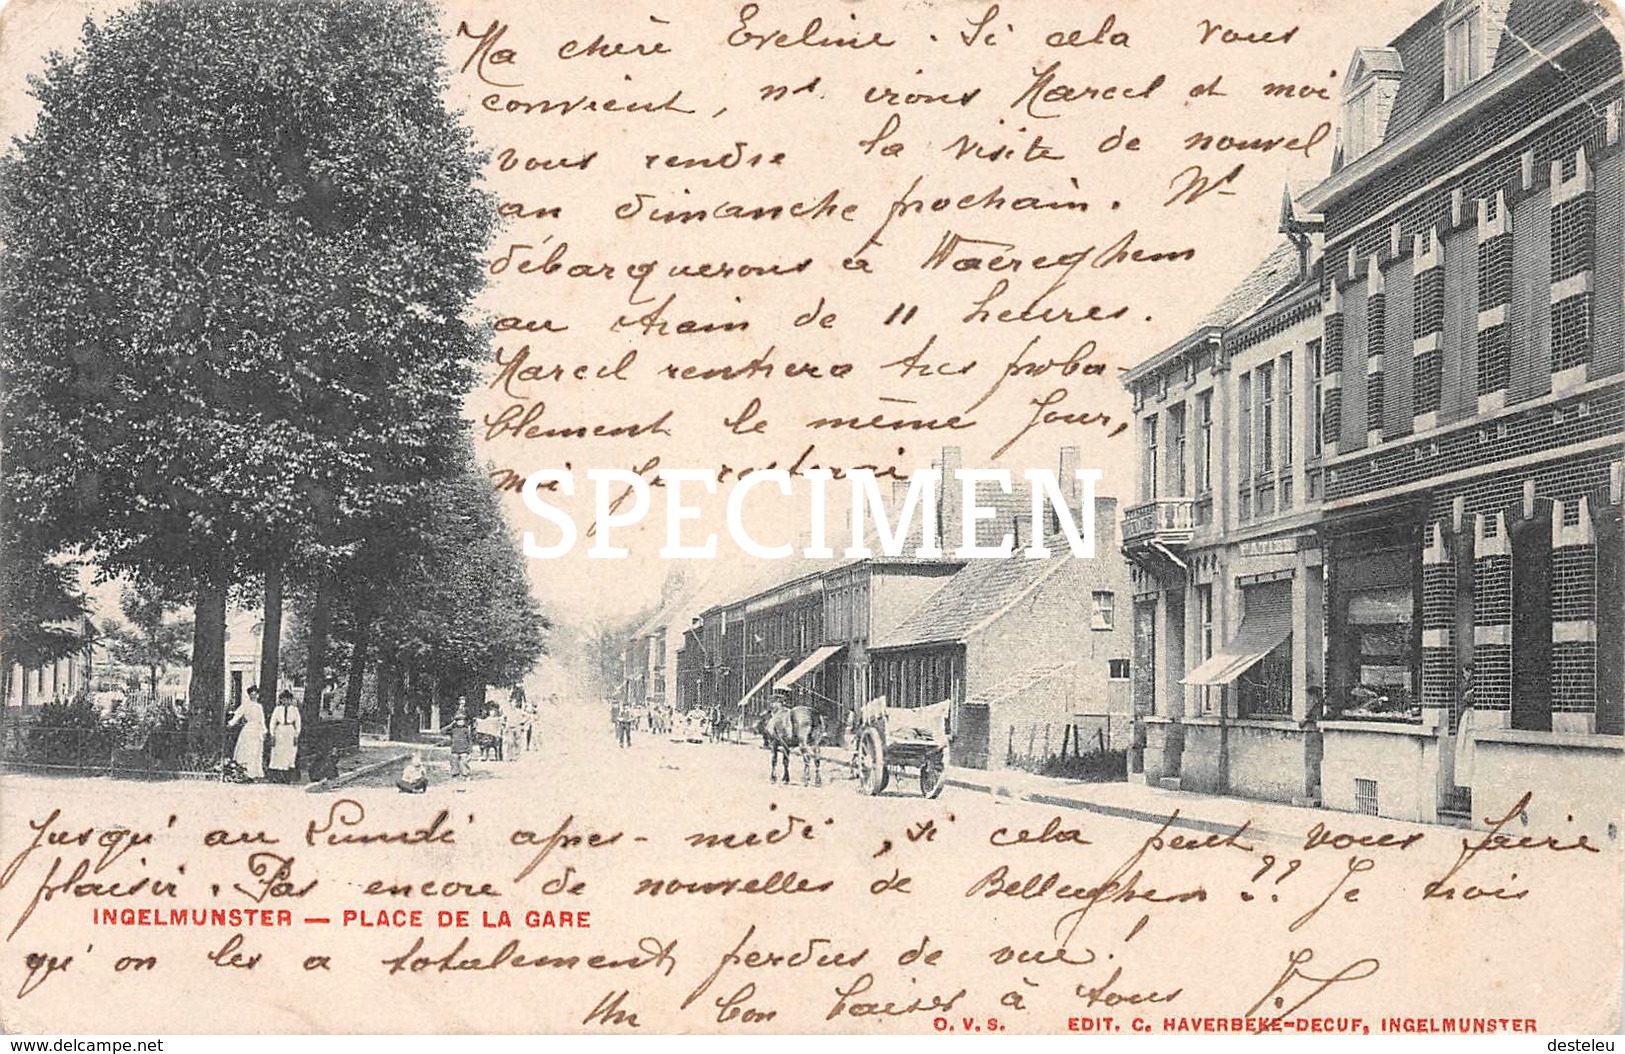 Ma chère Eveline. Si cela vous
convient, ns. irons Marcel et moi
vous rendre la visite de nouvel
an dimanche prochain. Ns
débarquerons à Waereghem
au train de 11 heures.
Marcel rentrera très proba-
blement le même jour,
moi je resterai
SPECIMEN
jusqu'au Lundi après-midi, si cela peut vous faire
plaisir. Pas encore de nouvelles de Belleghem?? Je crois
INGELMUNSTER — PLACE DE LA GARE
qu'on les a totalement perdus de vue!
Un bon baiser à tous
O. V. S. EDIT. C. HAVERBEKE-DECUF, INGELMUNSTER
delcampe.net
desteleu